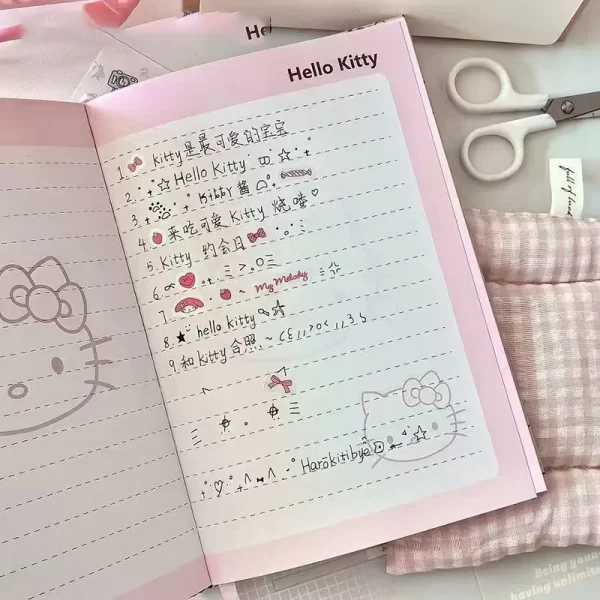 He
Hello Kitty
1. Kitty是最可爱的宝宝
2. Hello Kitty
3. Kitty酱
4. 来吃可爱Kitty烧喽
5. Kitty 约会日
6.
7. My Melody
8. hello kitty
9. 和Kitty合照~
Harokitibye
full of
Being young
having unlimite